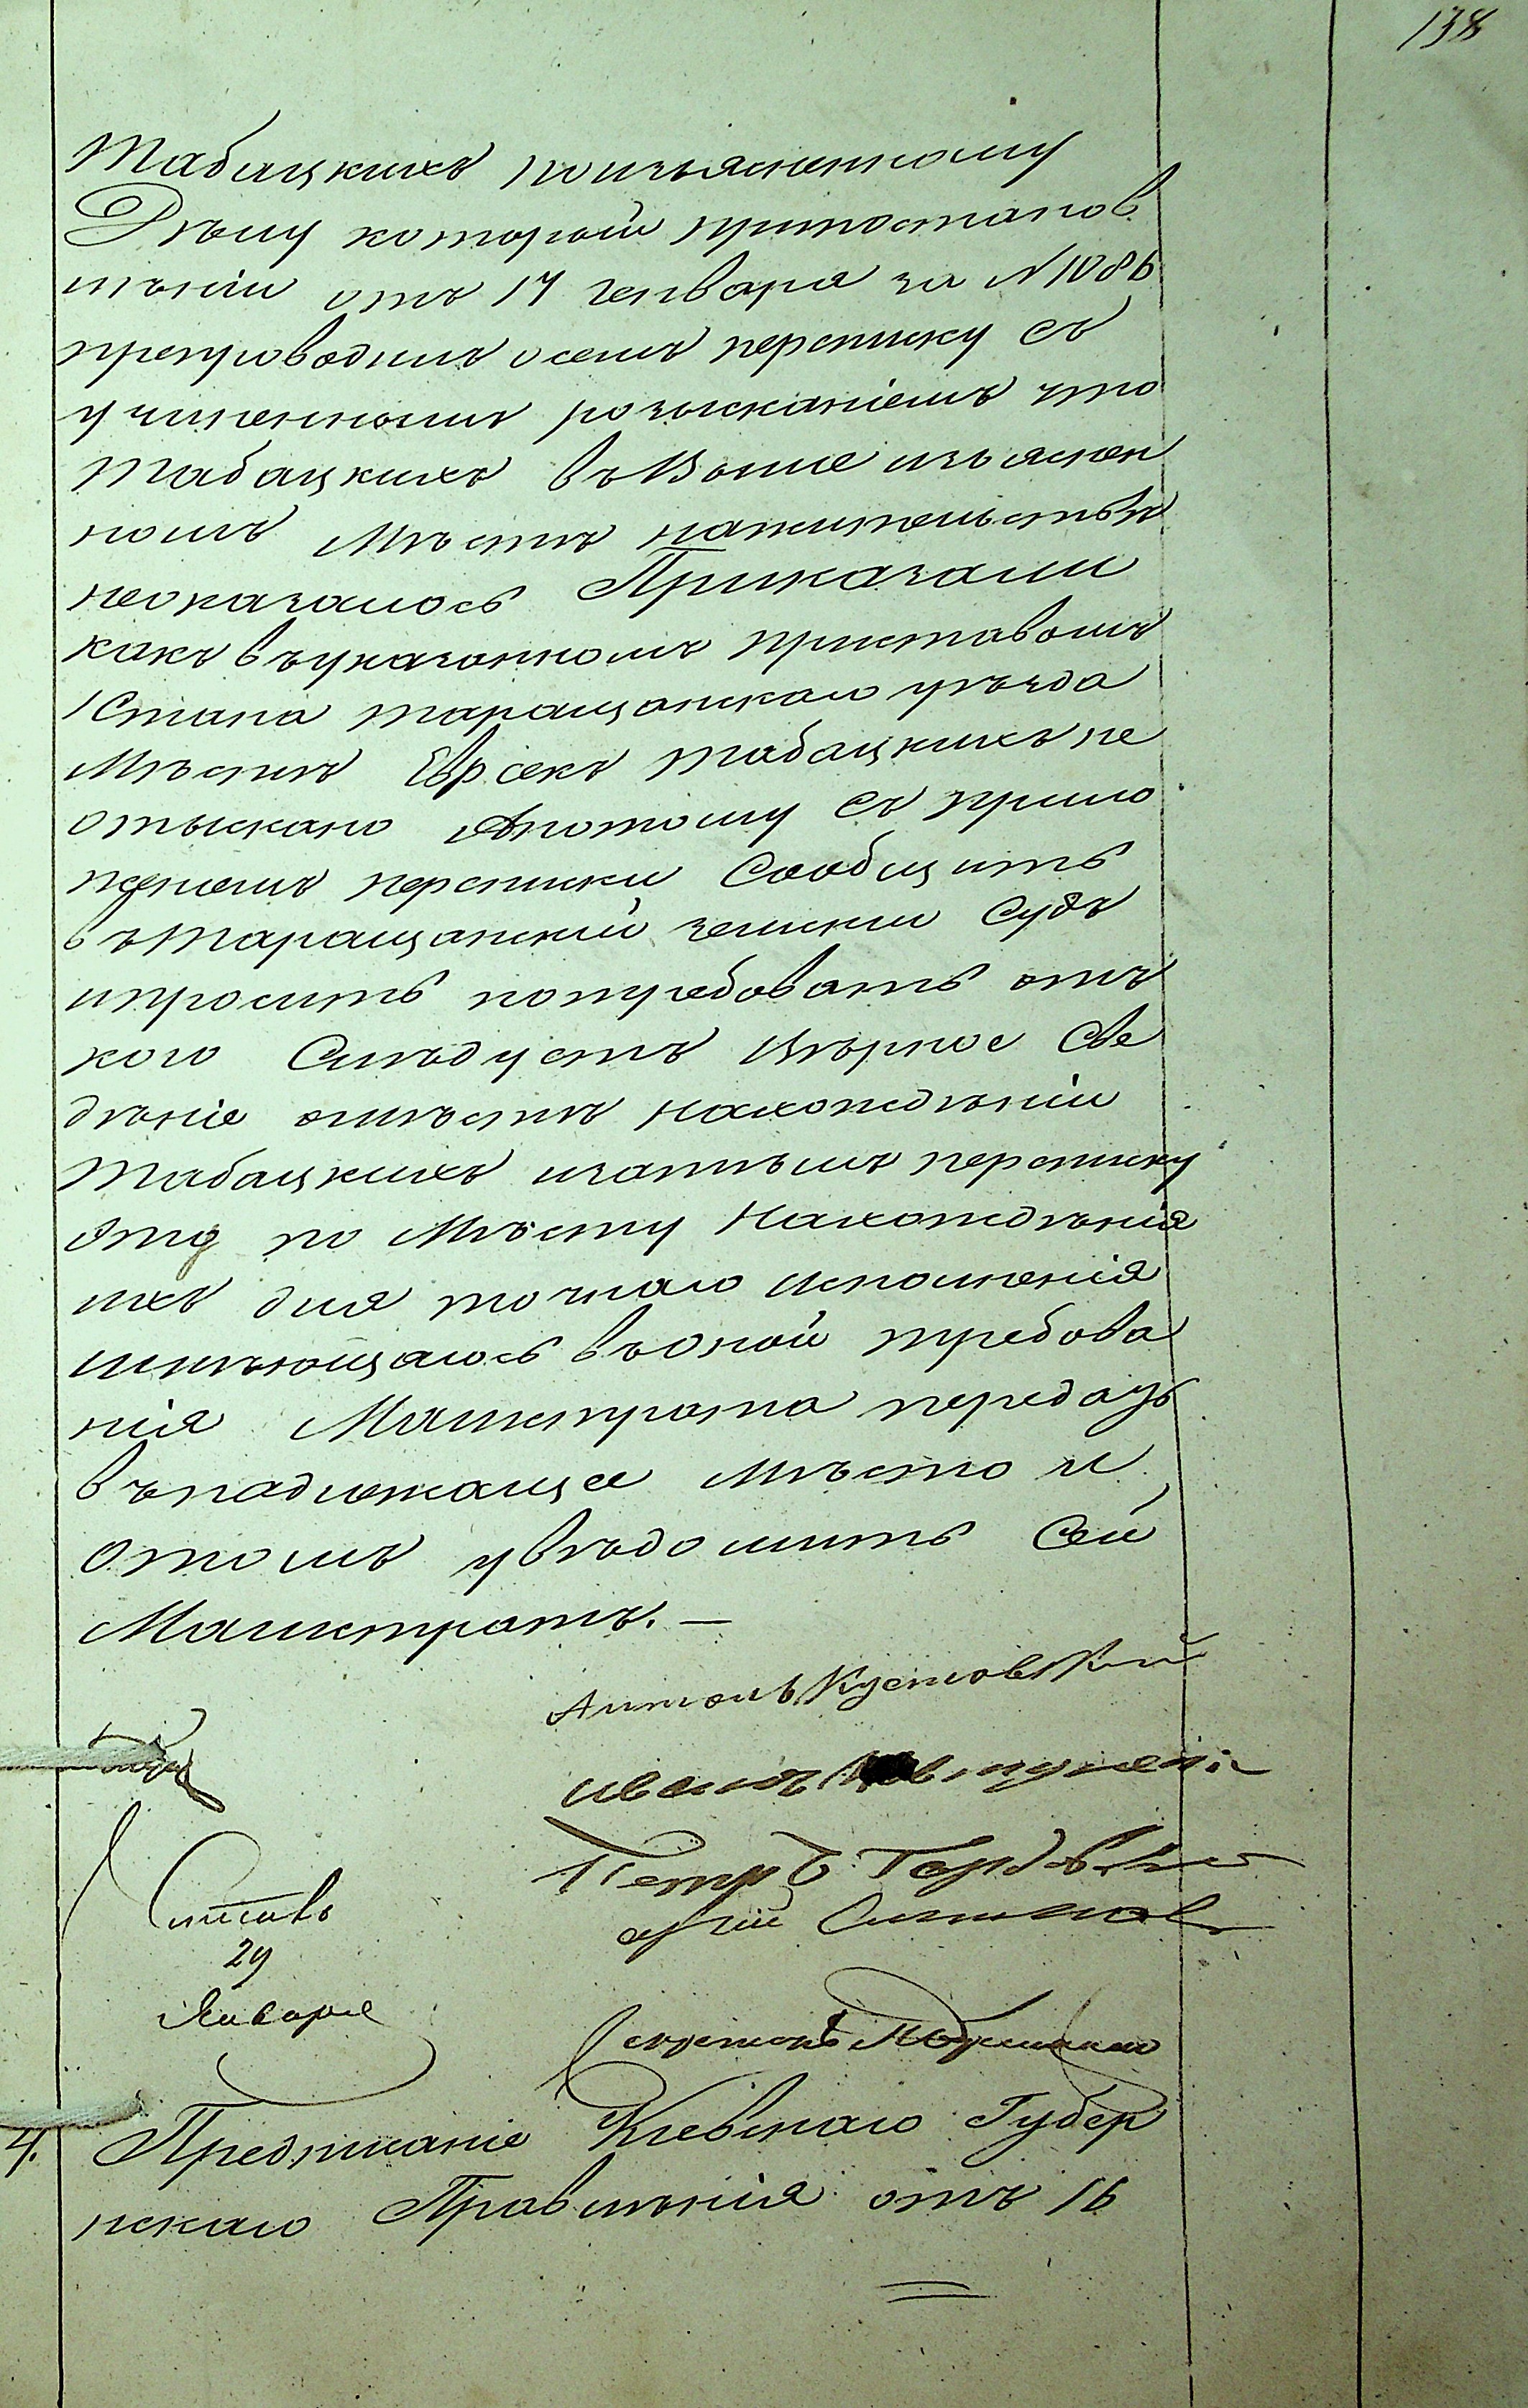 138
Табацкихъ поизъясненному
Дѣлу который припостанов
лѣніи отъ 17 Генваря за N 1086
препроводилъ осемъ переписку съ
учиненнымъ розысканіемъ что
Табацкихъ въ Выше изъяснен
номъ Мѣстѣ нажительствѣ
неоказалось Приказали
какъ въуказанномъ приставомъ
1 Стана таращанскаго уѣзда
Мѣстѣ Еврсекъ Табацкихъ не
отыскано Апотому съ прило
женіемъ переписки Сообщить
въ Таращанскій земскій Судъ
ипросить потребовать отъ
кого Слѣдуетъ Вѣрное Све
дѣніе омѣстѣ нахожденіи
Табацкихъ изатѣмъ переписку
эту по Мѣсту Нахождѣнія
ихъ для точнаго исполненія
имѣющагось въоной требова
нія Магистрата передать
въ надлежащее Мѣсто и
отомъ увѣдомить Сей
Магистратъ. —
Антонъ
иванъ
Петръ
29
Января
4. Предписаніе Кіевскаго Губер
нскаго Правленія отъ 16